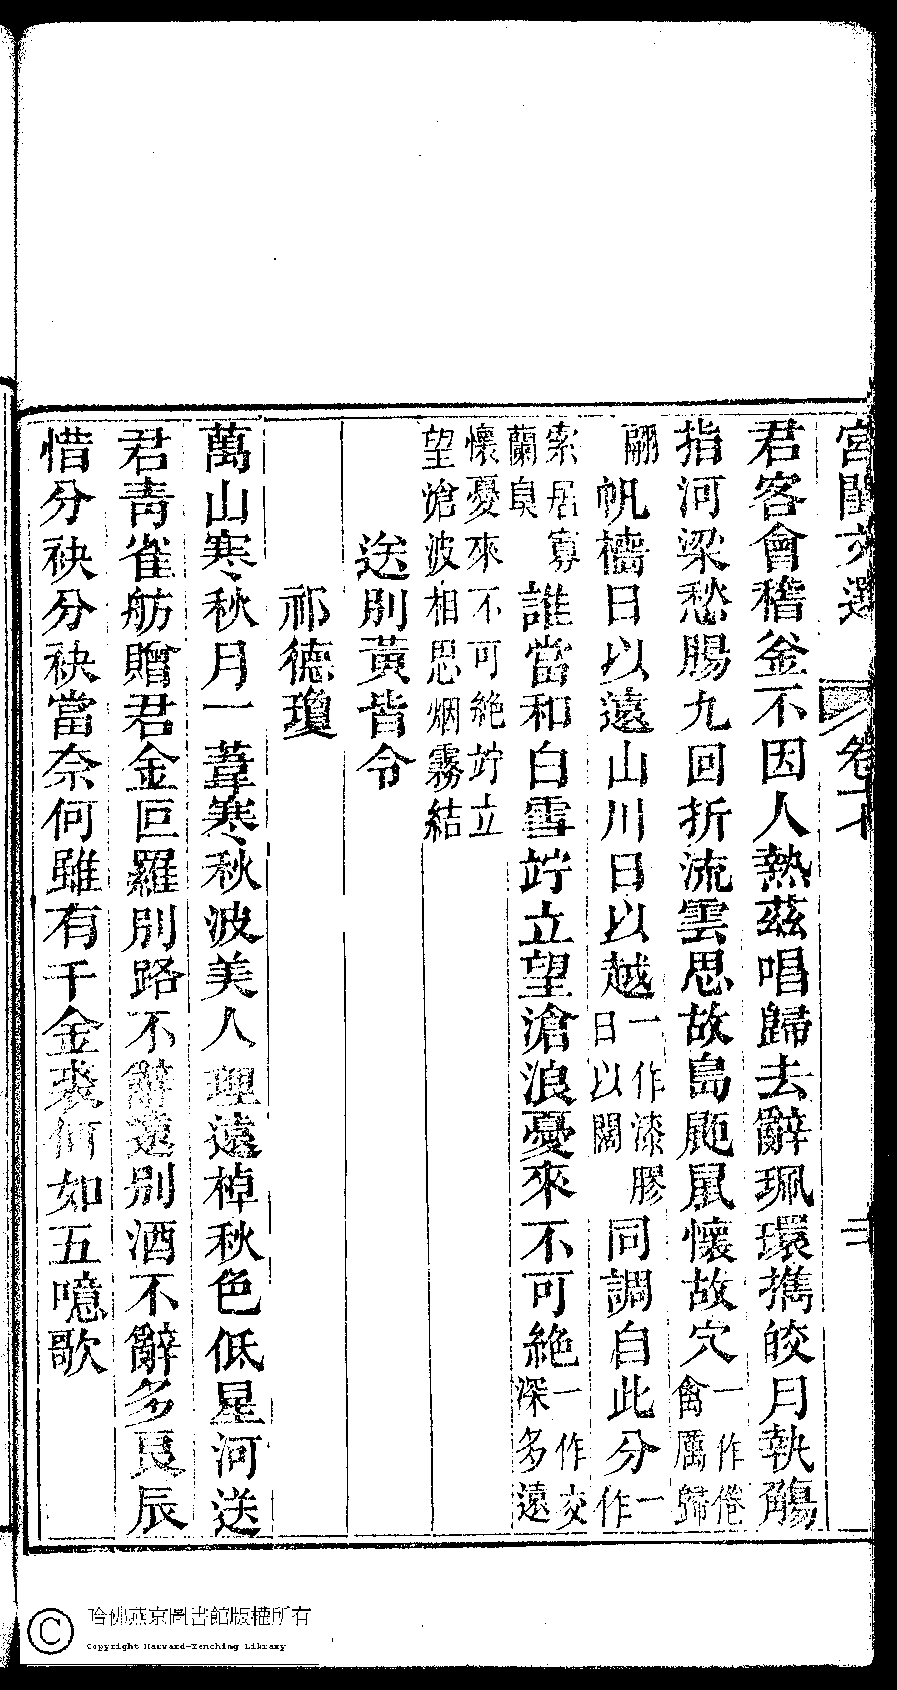 宮閨文選 卷
君客會稽釜不因人熱茲唱歸去辭珮環攜皎月執觴
指河梁愁腸九回折流雲思故島鼠懷故穴一作倦禽厲歸
翮帆檣日以遠山川日以越一作漆膠日以闊同調自此分一作
索居寡蘭臭誰當和白雪竚立望滄浪憂來不可絶一作交深多遠
懷憂來不可絶竚立望滄波相思烟霧結
送別黃皆令
祁德瓊
萬山寒秋月一葦寒秋波美人理遠棹秋色低星河送
君青雀舫贈君金叵羅別路不辭遠別酒不辭多良辰
惜分袂分袂當奈何雖有千金裘何如五噫歌
哈佛燕京圖書館版權所有
Copyright Harvard-Yenching Library